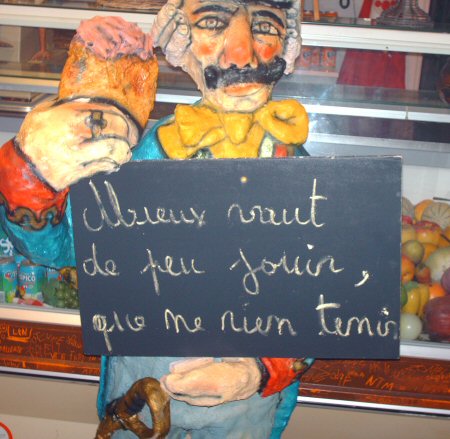 Mieux vaut
de peu jouir,
que ne rien tenir
TROPICO